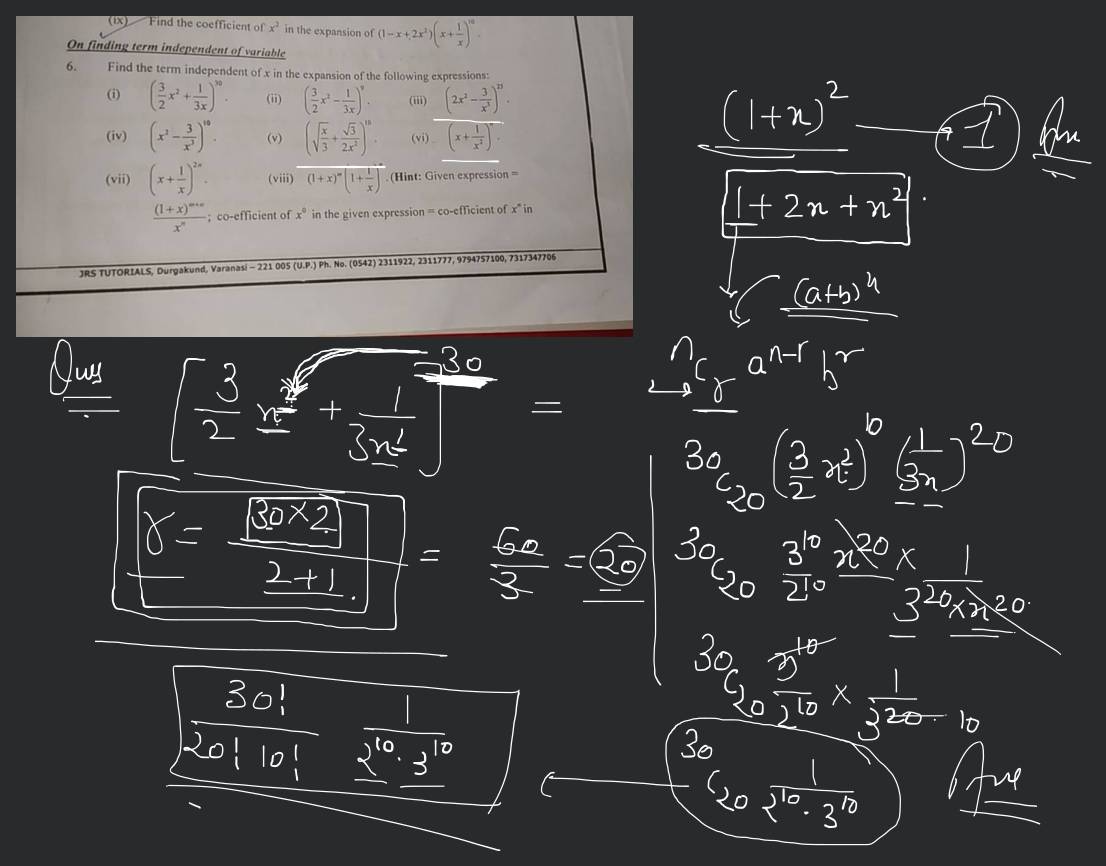 (ix) Find the coefficient of x² in the expansion of (1 – x + 2x²)(x + 1/x)¹⁰.
On finding term independent of variable
6. Find the term independent of x in the expansion of the following expressions:
(i) (3/2 x² + 1/3x)³⁰. (ii) (3/2 x² – 1/3x)⁹. (iii) (2x² – 3/x³)²⁵.
(iv) (x² – 3/x³)¹⁰. (v) (√x/3 + √3/2x²)¹⁰. (vi) (x + 1/x²)
(vii) (x + 1/x)²ⁿ. (viii) (1 + x)ᵐ (1 + 1/x)ⁿ. (Hint: Given expression =
(1 + x)ᵐ⁺ⁿ/xⁿ ; co-efficient of x⁰ in the given expression = co-efficient of xⁿ in
JRS TUTORIALS, Durgakund, Varanasi – 221 005 (U.P.) Ph. No. (0542) 2311922, 2311777, 9794757100, 7317347706
(1+x)² 1 Ans
1 + 2x + x²
(a+b)ⁿ
ⁿCr aⁿ⁻ʳ bʳ
Ques [3/2 x² + 1/3x¹]³⁰ =
r = 30×2/2+1. = 60/3 = 20
³⁰C₂₀ (3/2 x²)¹⁰ (1/3x)²⁰
³⁰C₂₀ 3¹⁰/2¹⁰ x²⁰ × 1/3²⁰×x²⁰
³⁰C₂₀ 3¹⁰/2¹⁰ × 1/3²⁰ 10
³⁰C₂₀ 1/2¹⁰·3¹⁰ Ans
30!/20! 10! 1/2¹⁰·3¹⁰